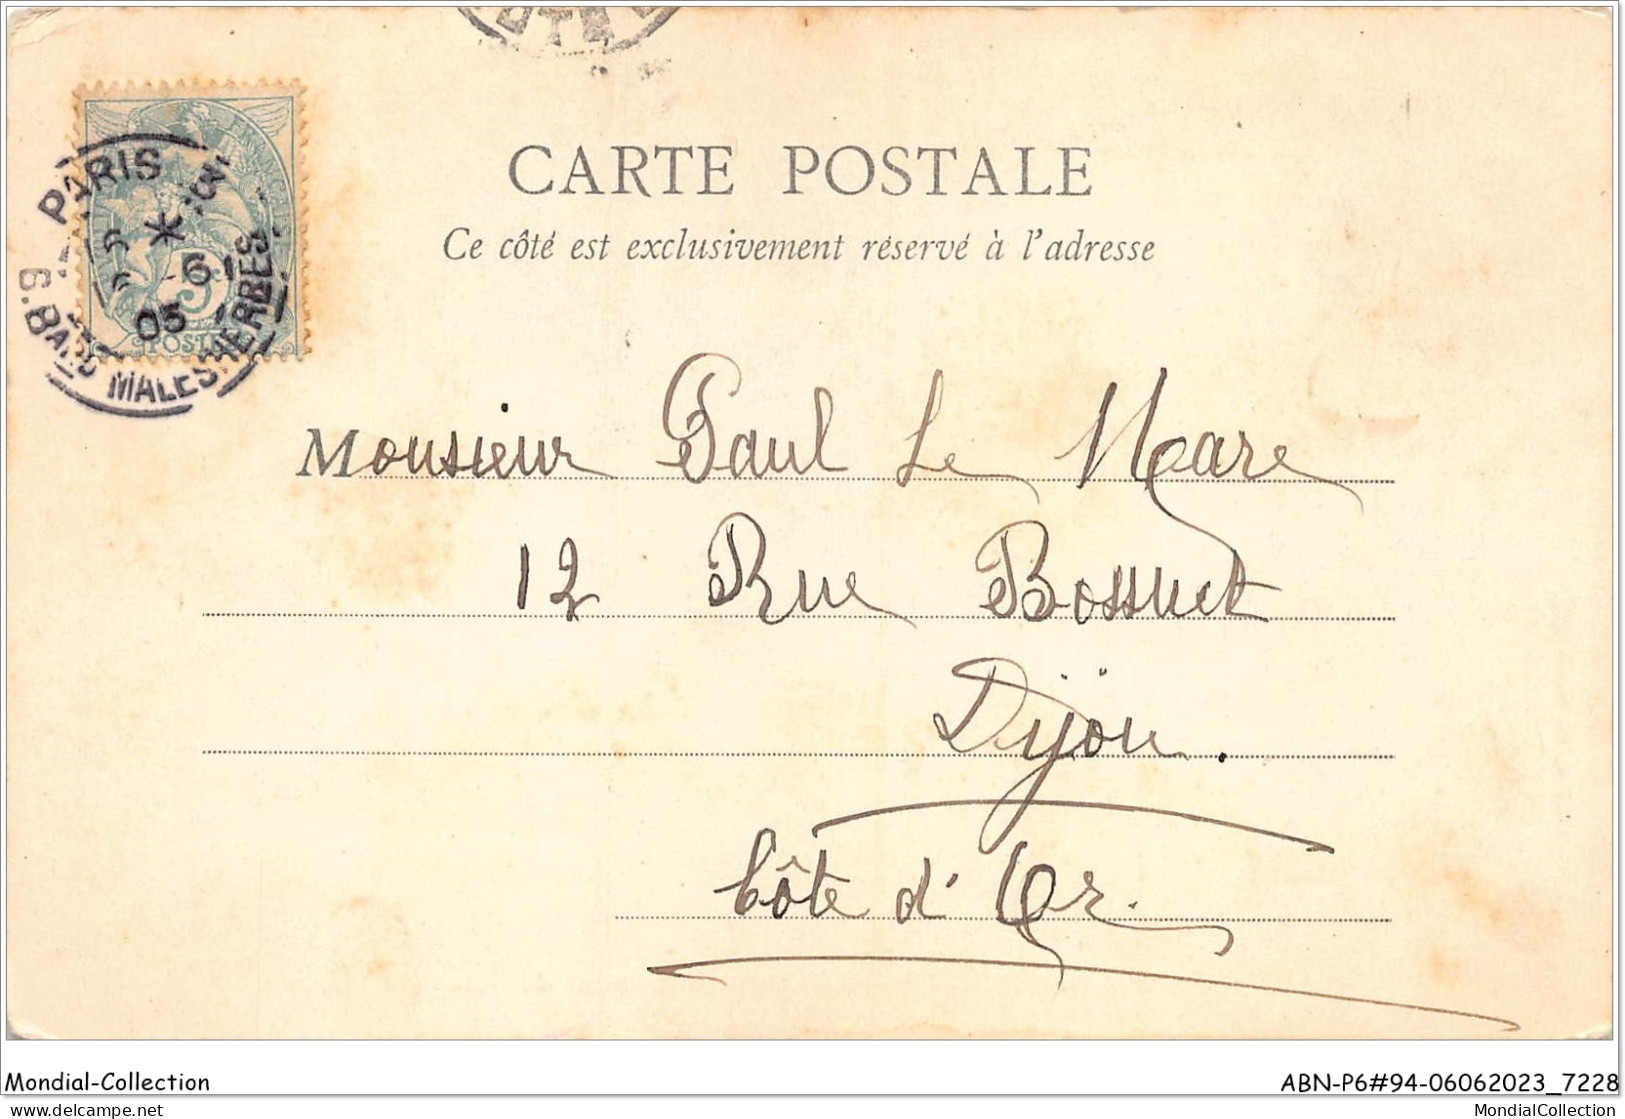 CARTE POSTALE
Ce côté est exclusivement réservé à l'adresse
PARIS
6
05
9. BARD MALESHERBES
5c
POSTES
Monsieur Paul Le Mare
12 Rue Bossuet
Dijon.
Côte d'Or.
Mondial-Collection
ABN-P6#94-06062023_7228
www.delcampe.net
MondialCollection